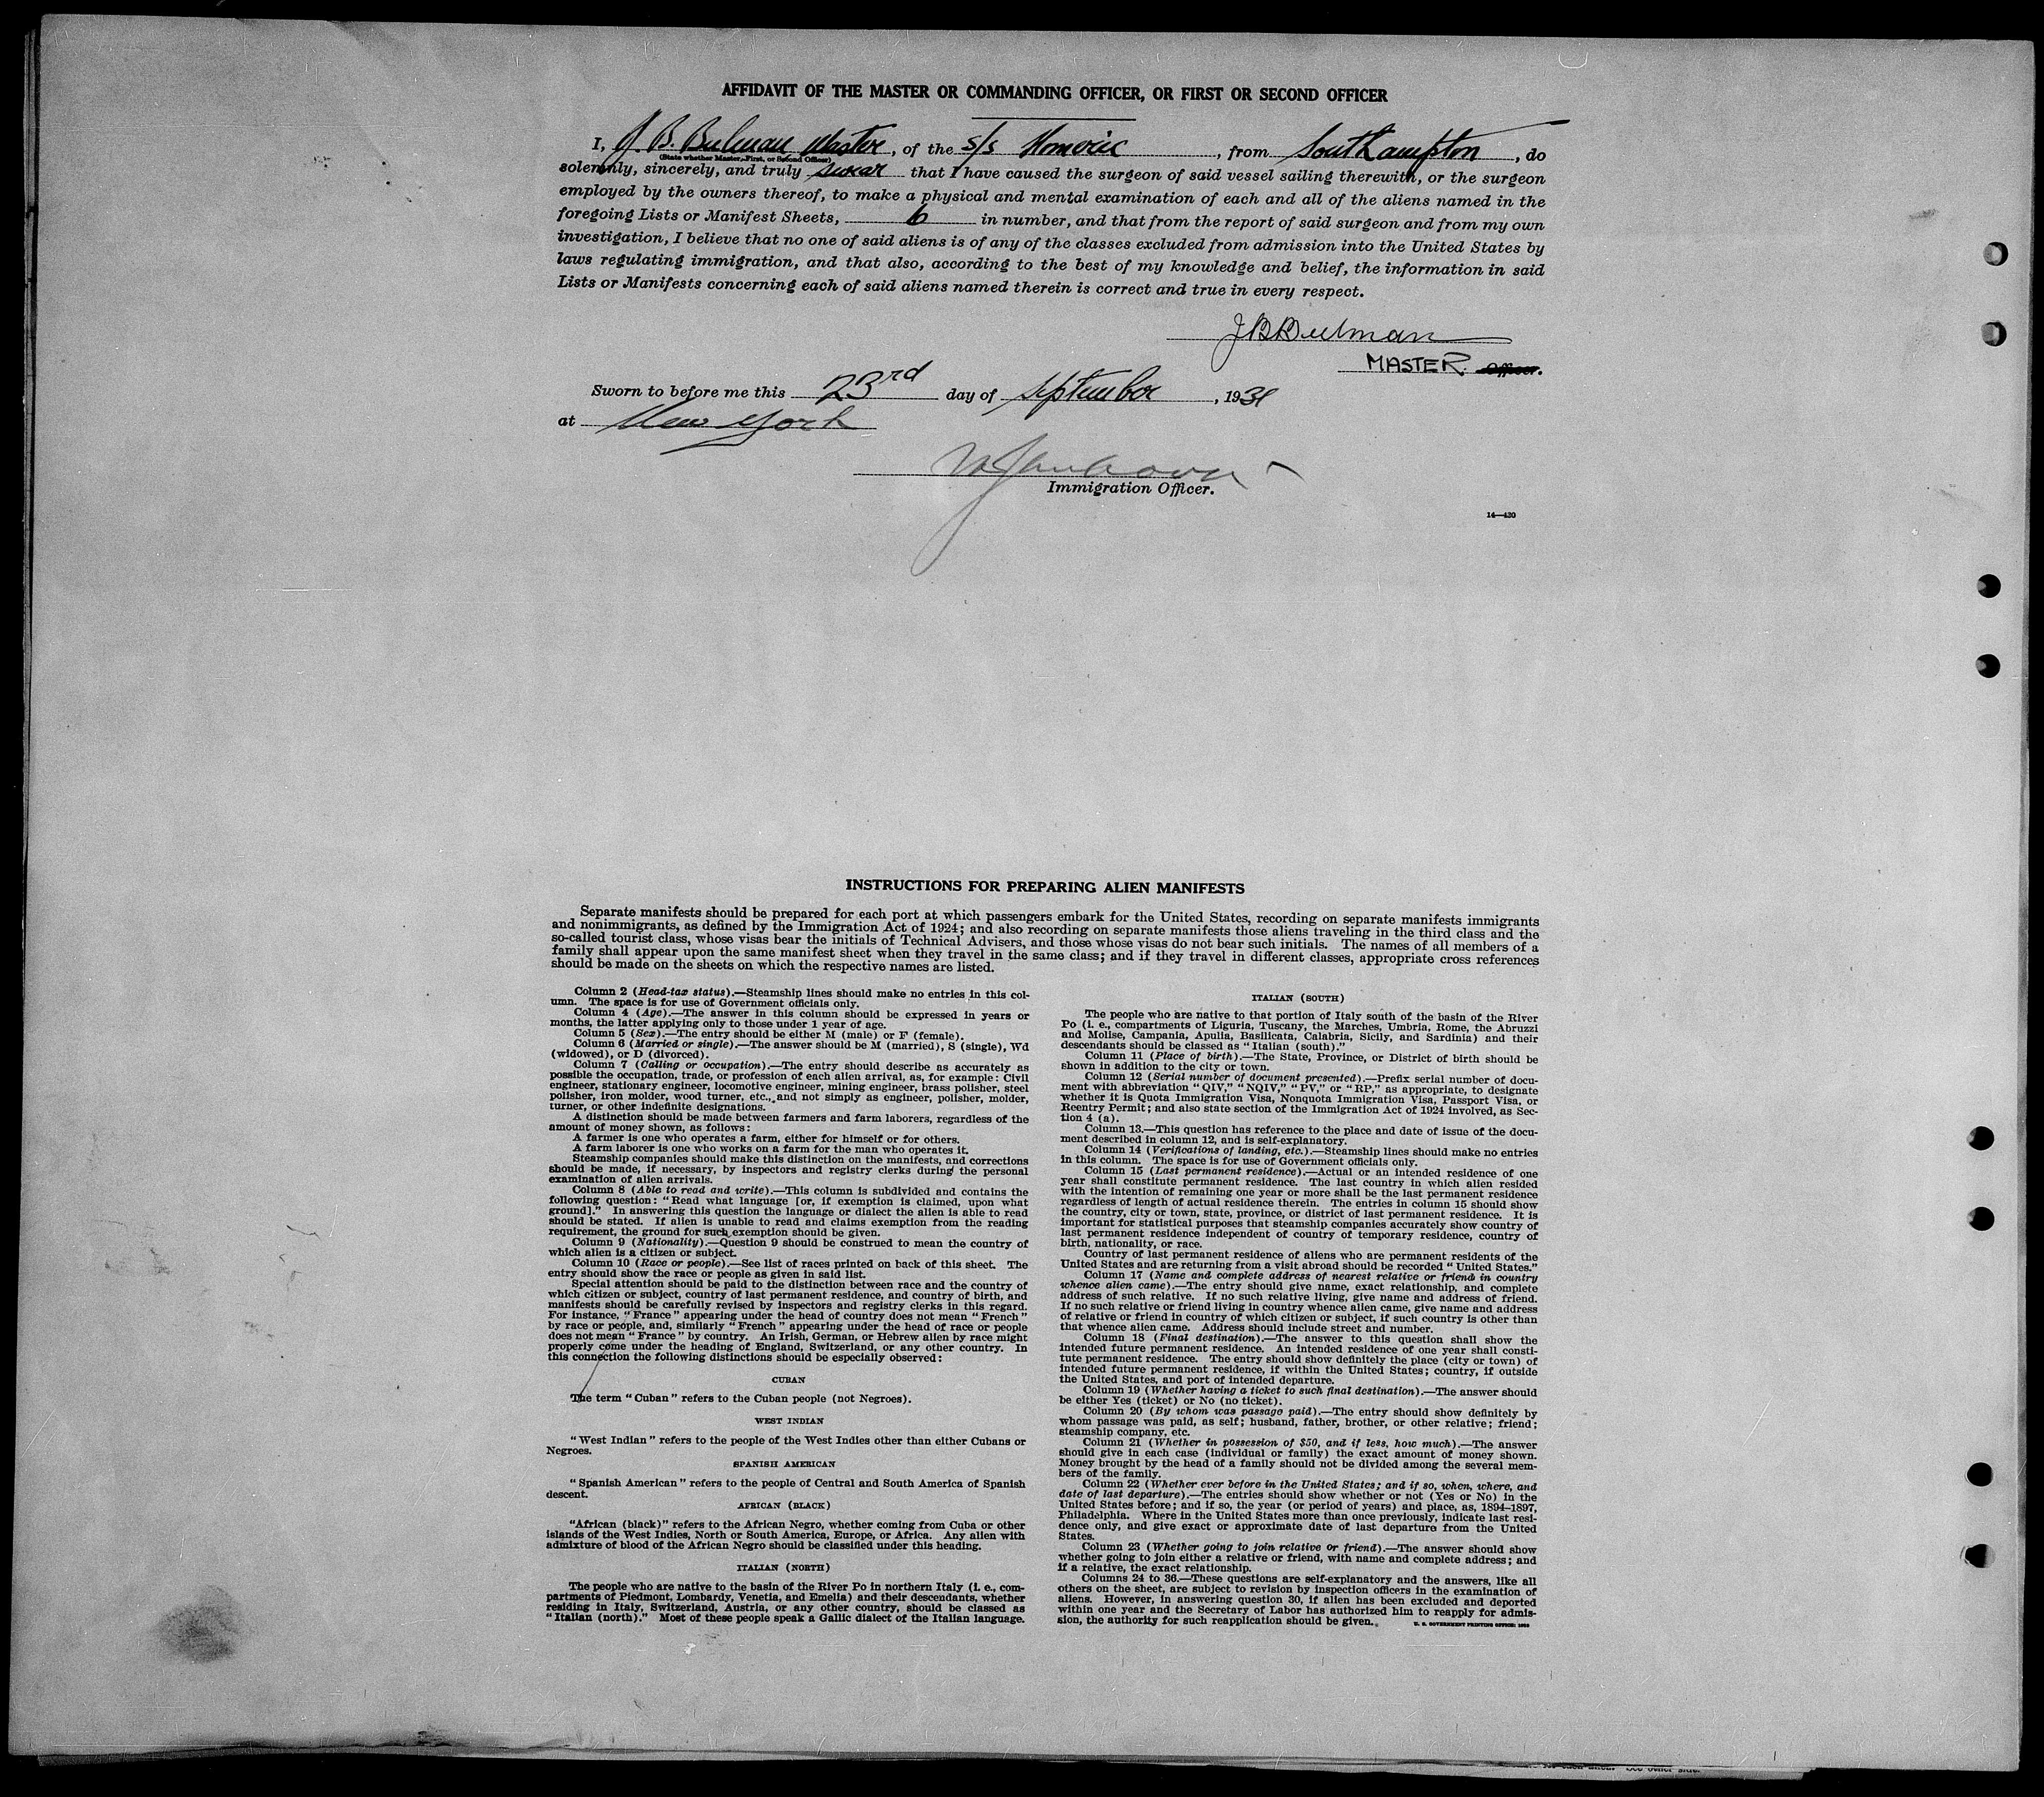 AFFIDAVIT OF THE MASTER OR COMMANDING OFFICER, OR FIRST OR SECOND OFFICER
I, J. B. Bulman Master, of the s/s Homeric, from Southampton, do
(State whether Master, First, or Second Officer)
solemnly, sincerely, and truly swear that I have caused the surgeon of said vessel sailing therewith, or the surgeon
employed by the owners thereof, to make a physical and mental examination of each and all of the aliens named in the
foregoing Lists or Manifest Sheets, 6 in number, and that from the report of said surgeon and from my own
investigation, I believe that no one of said aliens is of any of the classes excluded from admission into the United States by
laws regulating immigration, and that also, according to the best of my knowledge and belief, the information in said
Lists or Manifests concerning each of said aliens named therein is correct and true in every respect.
JBBulman
MASTER. Officer.
Sworn to before me this 23rd day of September, 1931
at New York
Immigration Officer.
14—420
INSTRUCTIONS FOR PREPARING ALIEN MANIFESTS
Separate manifests should be prepared for each port at which passengers embark for the United States, recording on separate manifests immigrants
and nonimmigrants, as defined by the Immigration Act of 1924; and also recording on separate manifests those aliens traveling in the third class and the
so-called tourist class, whose visas bear the initials of Technical Advisers, and those whose visas do not bear such initials. The names of all members of a
family shall appear upon the same manifest sheet when they travel in the same class; and if they travel in different classes, appropriate cross references
should be made on the sheets on which the respective names are listed.
Column 2 (Head-tax status).—Steamship lines should make no entries in this col-
umn. The space is for use of Government officials only.
Column 4 (Age).—The answer in this column should be expressed in years or
months, the latter applying only to those under 1 year of age.
Column 5 (Sex).—The entry should be either M (male) or F (female).
Column 6 (Married or single).—The answer should be M (married), S (single), Wd
(widowed), or D (divorced).
Column 7 (Calling or occupation).—The entry should describe as accurately as
possible the occupation, trade, or profession of each alien arrival, as, for example: Civil
engineer, stationary engineer, locomotive engineer, mining engineer, brass polisher, steel
polisher, iron molder, wood turner, etc., and not simply as engineer, polisher, molder,
turner, or other indefinite designations.
A distinction should be made between farmers and farm laborers, regardless of the
amount of money shown, as follows:
A farmer is one who operates a farm, either for himself or for others.
A farm laborer is one who works on a farm for the man who operates it.
Steamship companies should make this distinction on the manifests, and corrections
should be made, if necessary, by inspectors and registry clerks during the personal
examination of alien arrivals.
Column 8 (Able to read and write).—This column is subdivided and contains the
following question: "Read what language [or, if exemption is claimed, upon what
ground]." In answering this question the language or dialect the alien is able to read
should be stated. If alien is unable to read and claims exemption from the reading
requirement, the ground for such exemption should be given.
Column 9 (Nationality).—Question 9 should be construed to mean the country of
which alien is a citizen or subject.
Column 10 (Race or people).—See list of races printed on back of this sheet. The
entry should show the race or people as given in said list.
Special attention should be paid to the distinction between race and the country of
which citizen or subject, country of last permanent residence, and country of birth, and
manifests should be carefully revised by inspectors and registry clerks in this regard.
For instance, "France" appearing under the head of country does not mean "French"
by race or people, and, similarly "French" appearing under the head of race or people
does not mean "France" by country. An Irish, German, or Hebrew alien by race might
properly come under the heading of England, Switzerland, or any other country. In
this connection the following distinctions should be especially observed:
CUBAN
The term "Cuban" refers to the Cuban people (not Negroes).
WEST INDIAN
"West Indian" refers to the people of the West Indies other than either Cubans or
Negroes.
SPANISH AMERICAN
"Spanish American" refers to the people of Central and South America of Spanish
descent.
AFRICAN (BLACK)
"African (black)" refers to the African Negro, whether coming from Cuba or other
islands of the West Indies, North or South America, Europe, or Africa. Any alien with
admixture of blood of the African Negro should be classified under this heading.
ITALIAN (NORTH)
The people who are native to the basin of the River Po in northern Italy (i. e., com-
partments of Piedmont, Lombardy, Venetia, and Emelia) and their descendants, whether
residing in Italy, Switzerland, Austria, or any other country, should be classed as
"Italian (north)." Most of these people speak a Gallic dialect of the Italian language.
ITALIAN (SOUTH)
The people who are native to that portion of Italy south of the basin of the River
Po (i. e., compartments of Liguria, Tuscany, the Marches, Umbria, Rome, the Abruzzi
and Molise, Campania, Apulia, Basilicata, Calabria, Sicily, and Sardinia) and their
descendants should be classed as "Italian (south)."
Column 11 (Place of birth).—The State, Province, or District of birth should be
shown in addition to the city or town.
Column 12 (Serial number of document presented).—Prefix serial number of docu-
ment with abbreviation "QIV," "NQIV," "PV," or "RP," as appropriate, to designate
whether it is Quota Immigration Visa, Nonquota Immigration Visa, Passport Visa, or
Reentry Permit; and also state section of the Immigration Act of 1924 involved, as Sec-
tion 4 (a).
Column 13.—This question has reference to the place and date of issue of the docu-
ment described in column 12, and is self-explanatory.
Column 14 (Verifications of landing, etc.).—Steamship lines should make no entries
in this column. The space is for use of Government officials only.
Column 15 (Last permanent residence).—Actual or an intended residence of one
year shall constitute permanent residence. The last country in which alien resided
with the intention of remaining one year or more shall be the last permanent residence
regardless of length of actual residence therein. The entries in column 15 should show
the country, city or town, state, province, or district of last permanent residence. It is
important for statistical purposes that steamship companies accurately show country of
last permanent residence independent of country of temporary residence, country of
birth, nationality, or race.
Country of last permanent residence of aliens who are permanent residents of the
United States and are returning from a visit abroad should be recorded "United States."
Column 17 (Name and complete address of nearest relative or friend in country
whence alien came).—The entry should give name, exact relationship, and complete
address of such relative. If no such relative living, give name and address of friend.
If no such relative or friend living in country whence alien came, give name and address
of relative or friend in country of which citizen or subject, if such country is other than
that whence alien came. Address should include street and number.
Column 18 (Final destination).—The answer to this question shall show the
intended future permanent residence. An intended residence of one year shall consti-
tute permanent residence. The entry should show definitely the place (city or town) of
intended future permanent residence, if within the United States; country, if outside
the United States, and port of intended departure.
Column 19 (Whether having a ticket to such final destination).—The answer should
be either Yes (ticket) or No (no ticket).
Column 20 (By whom was passage paid).—The entry should show definitely by
whom passage was paid, as self; husband, father, brother, or other relative; friend;
steamship company, etc.
Column 21 (Whether in possession of $50, and if less, how much).—The answer
should give in each case (individual or family) the exact amount of money shown.
Money brought by the head of a family should not be divided among the several mem-
bers of the family.
Column 22 (Whether ever before in the United States; and if so, when, where, and
date of last departure).—The entries should show whether or not (Yes or No) in the
United States before; and if so, the year (or period of years) and place, as, 1894–1897,
Philadelphia. Where in the United States more than once previously, indicate last resi-
dence only, and give exact or approximate date of last departure from the United
States.
Column 23 (Whether going to join relative or friend).—The answer should show
whether going to join either a relative or friend, with name and complete address; and
if a relative, the exact relationship.
Columns 24 to 36.—These questions are self-explanatory and the answers, like all
others on the sheet, are subject to revision by inspection officers in the examination of
aliens. However, in answering question 30, if alien has been excluded and deported
within one year and the Secretary of Labor has authorized him to reapply for admis-
sion, the authority for such reapplication should be given.
U. S. GOVERNMENT PRINTING OFFICE:
See other side.